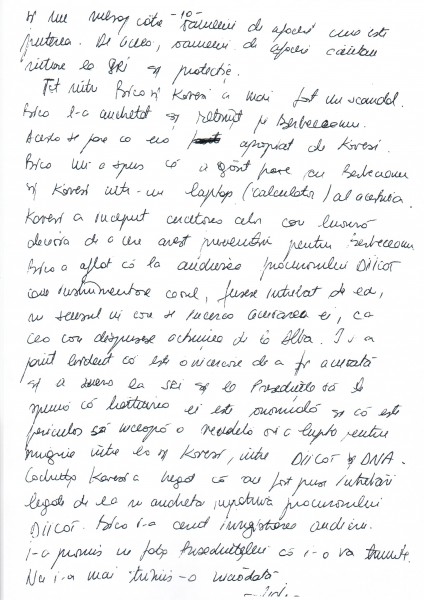 -10-
și me mesaj către oameni de afaceri cine este
puterea. De aceea, oamenii de afaceri căutau
la SRI și protecție.
Tot între Bica și Kovesi a mai fost un scandal.
Bica l-a anchetat și reținut pe Berbeceanu.
Acesta se pare că era apropiat de Kovesi.
Bica mi-a spus că a găsit poze cu Berbeceanu
și Kovesi într-un laptop (calculator) al acestuia.
Kovesi a început cercetarea celor care luaseră
decizia de a cere arest preventiv pentru Berbeceanu
Bica a aflat că la audierea procurorului DIICOT
care instrumentase cazul, fusese întrebat de ea,
în sensul în care se încerca acuzarea ei, ca
cea care dispusese acțiunea de la Alba. I s-a
părut evident că este o încercare de a fi acuzată
și a mers la SRI și la Președinție să le
spună că hotărârea ei este și că este
periculos să înceapă o luptă pentru
între ea și Kovesi, între DIICOT și DNA.
Codruța Kovesi a negat că au fost puse întrebări
legate de ea în ancheta împotriva procurorului
DIICOT. Bica i-a cerut înregistrarea audierii.
I-a promis în fața Președintelui că i-o va trimite.
Nu i-a mai trimis-o niciodată